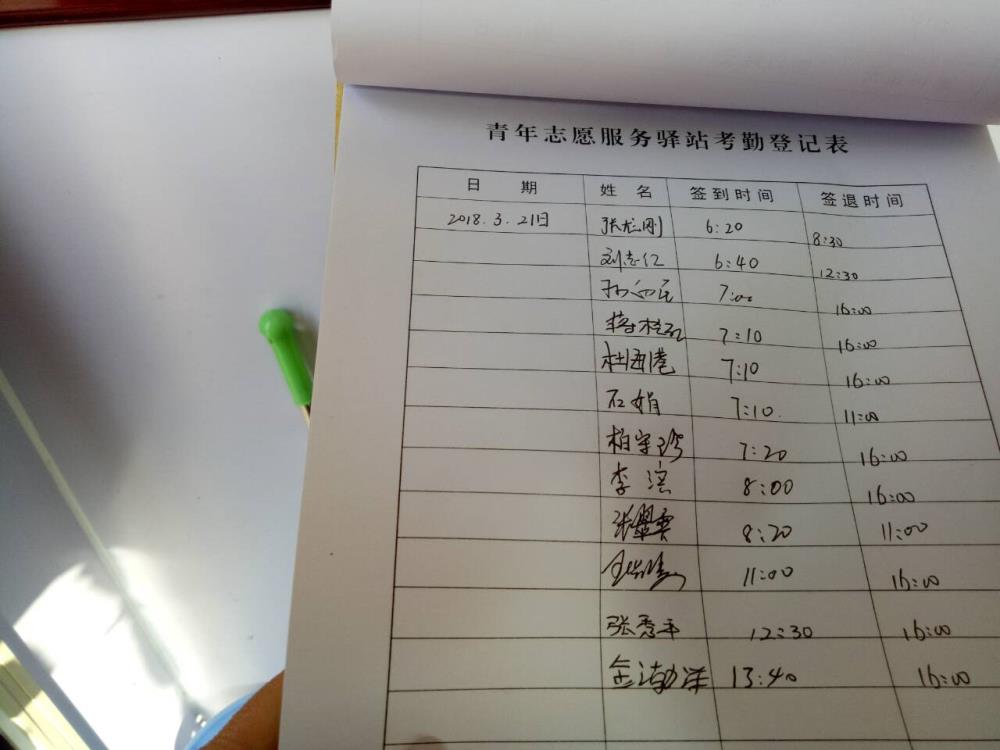 青年志愿服务驿站考勤登记表
日 期 姓 名 签到时间 签退时间
2018.3.21日 张龙刚 6:20 8:30
刘志仁 6:40 12:30
7:00 16:00
7:10 16:00
杜海港 7:10 16:00
石娟 7:10. 11:00
柏守珍 7:20 16:00
李滨 8:00 16:00
张 8:20 11:00
11:00 16:00
张秀平 12:30 16:00
金渤洋 13:40 16:00